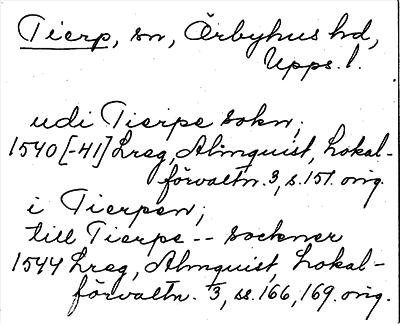 Tierp, sn, Örbyhus hd,
Upps. l.
udi Tierpe sokn;
1540 [-41] Lreg, Almquist, Lokal-
förvaltn. 3, s. 151. orig.
i Tierpen;
till Tierpe -- sockner
1544 Lreg, Almquist, Lokal-
förvaltn. 3, ss. 166, 169. orig.